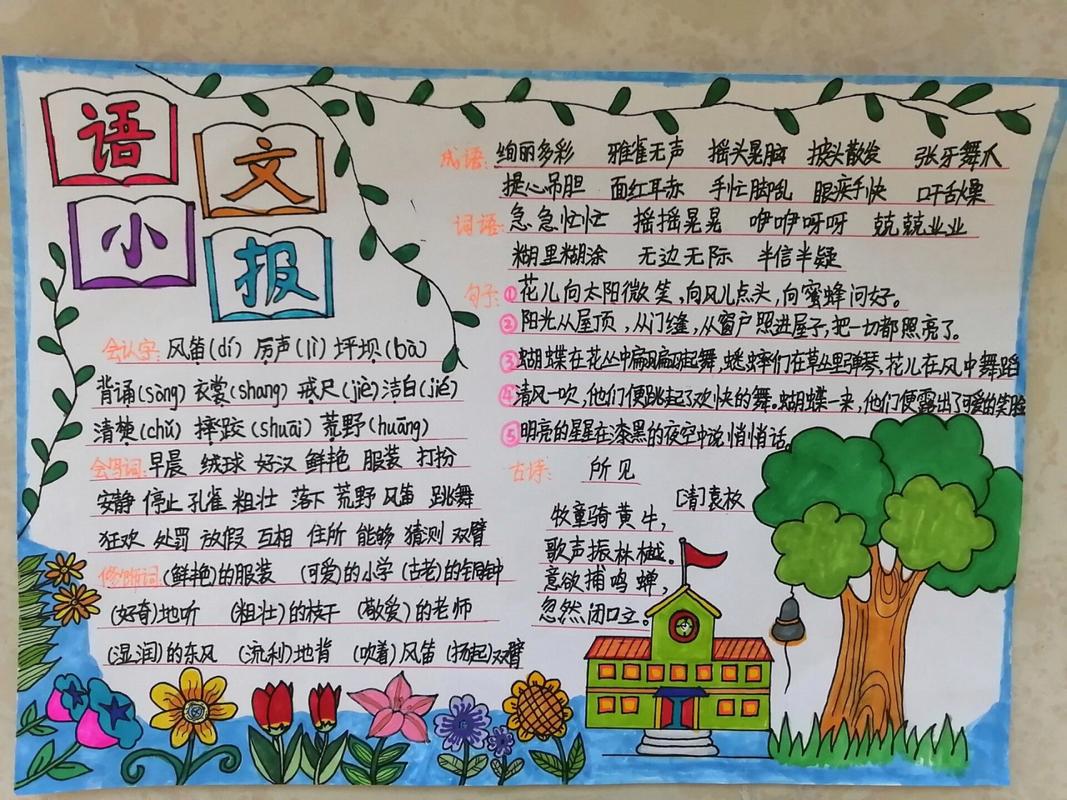 语文
小报
会认字:风笛(dí) 厉声(lì) 坪坝(bà)
背诵(sòng) 衣裳(shang) 戒尺(jiè) 洁白(jié)
清楚(chǔ) 摔跤(shuāi) 荒野(huāng)
会写词:早晨 绒球 好汉 鲜艳 服装 打扮
安静 停止 孔雀 粗壮 落下 荒野 风笛 跳舞
狂欢 处罚 放假 互相 住所 能够 猜测 双臂
修饰词:(鲜艳)的服装 (可爱)的小学 (古老)的铜钟
(好奇)地听 (粗壮)的枝干 (敬爱)的老师
(湿润)的东风 (流利)地背 (吹着)风笛 (扬起)双臂
成语:绚丽多彩 鸦雀无声 摇头晃脑 披头散发 张牙舞爪
提心吊胆 面红耳赤 手忙脚乱 眼疾手快 口干舌燥
词语:急急忙忙 摇摇晃晃 咿咿呀呀 兢兢业业
糊里糊涂 无边无际 半信半疑
句子:①花儿向太阳微笑,向风儿点头,向蜜蜂问好。
②阳光从屋顶,从门缝,从窗户照进屋子,把一切都照亮了。
③蝴蝶在花丛中翩翩起舞,蟋蟀们在草丛里弹琴,花儿在风中舞蹈
④清风一吹,他们便跳起了欢快的舞。蝴蝶一来,他们便露出了可爱的笑脸
⑤明亮的星星在漆黑的夜空中说悄悄话。
古诗: 所见
[清]袁枚
牧童骑黄牛,
歌声振林樾。
意欲捕鸣蝉,
忽然闭口立。